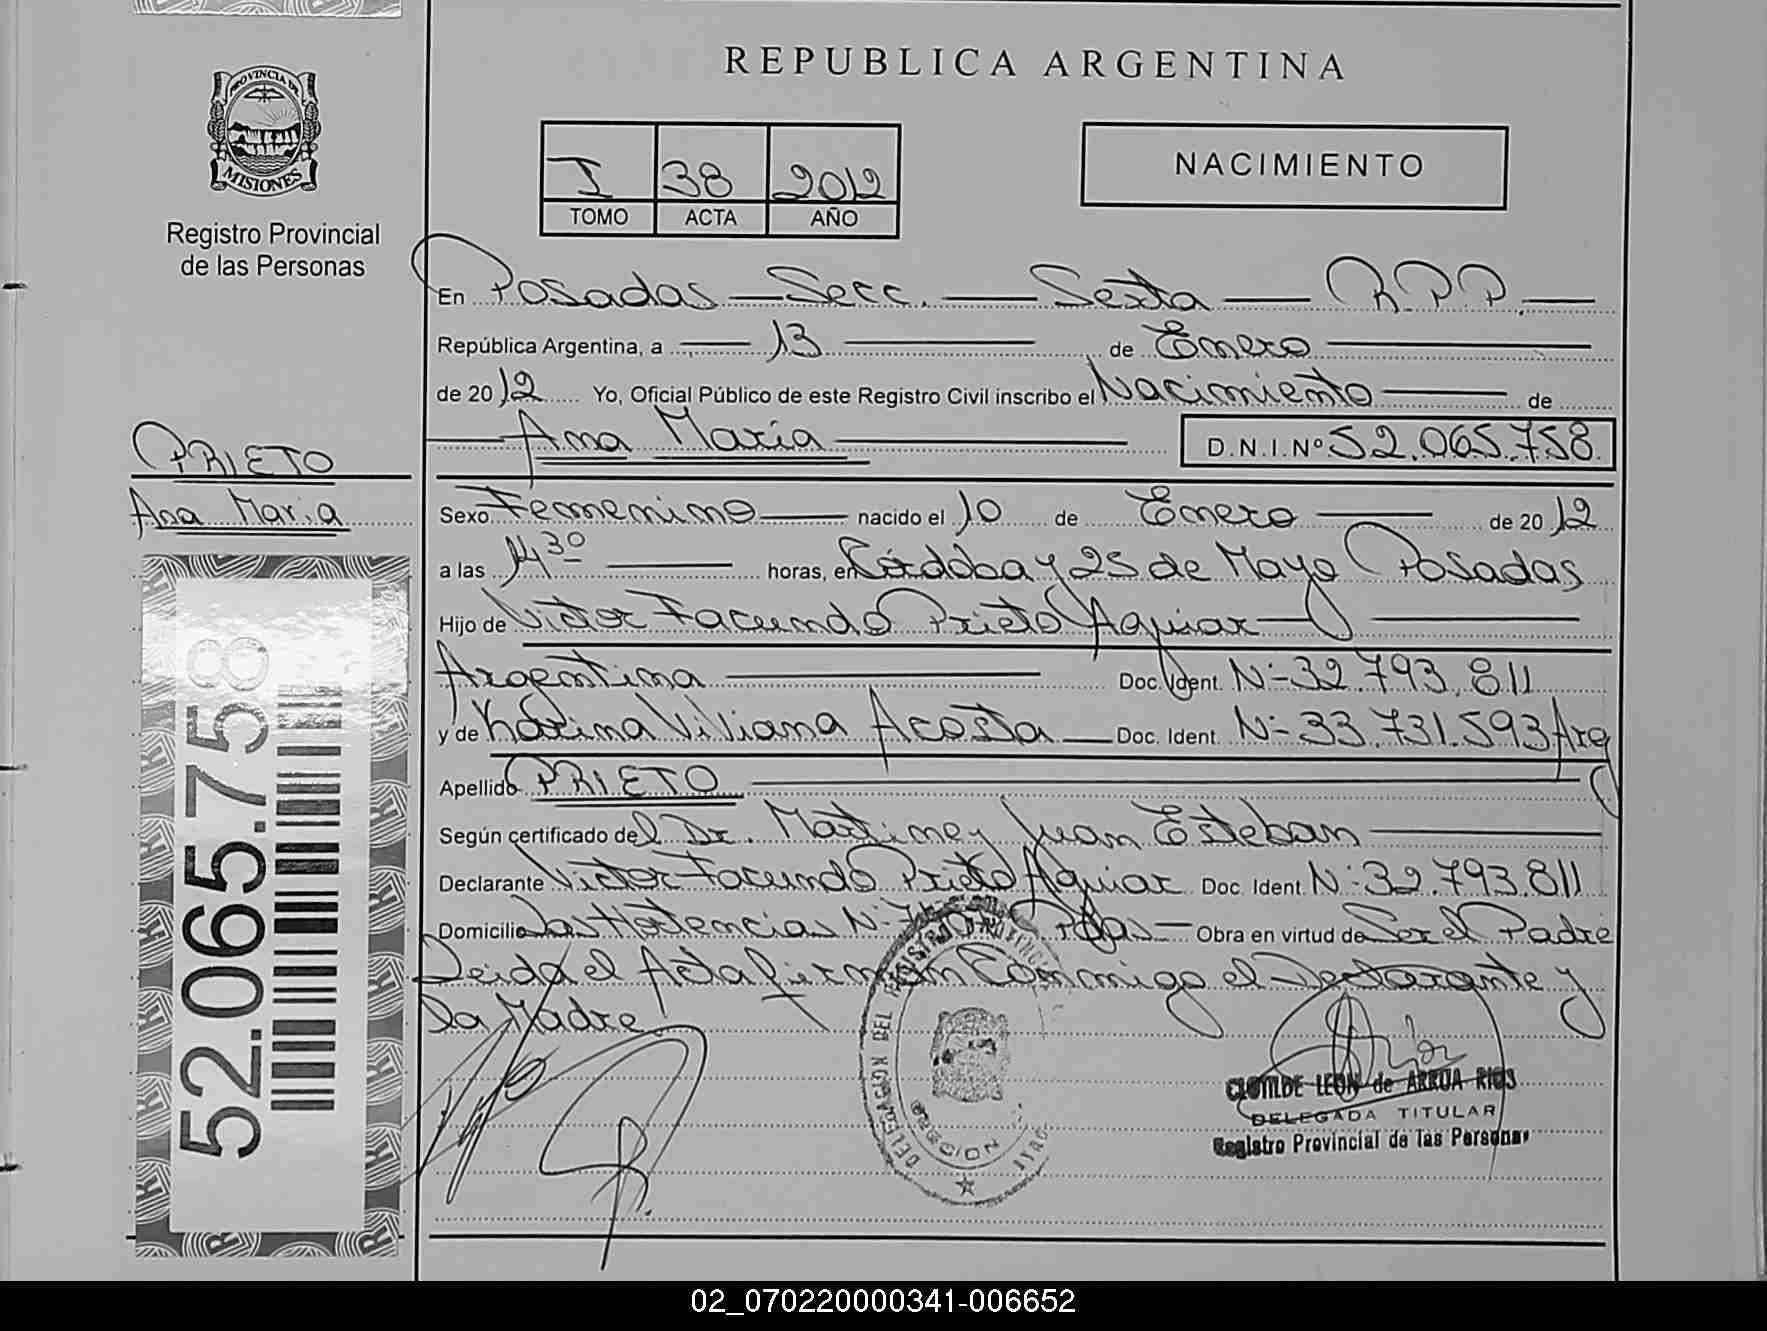 REPUBLICA ARGENTINA
PROVINCIA DE
MISIONES
Registro Provincial
de las Personas
I 38 2012
TOMO ACTA AÑO
NACIMIENTO
En Posadas — Secc. — Sexta — R.P.P. —
República Argentina, a — 13 — de Enero —
de 2012 Yo, Oficial Público de este Registro Civil inscribo el Nacimiento — de
— Ana María — D.N.I.Nº 52.065.758
PRIETO
Ana María
Sexo Femenino — nacido el 10 de Enero — de 2012
a las 14 30 — horas, en Córdoba y 25 de Mayo Posadas
Hijo de Victor Facundo Prieto Aguiar —
Argentina — Doc. Ident. Nº 32.793.811
y de Karina Viviana Acosta — Doc. Ident. Nº 33.731.593 Arg
Apellido PRIETO —
Según certificado del Dr. Martinez Juan Esteban —
Declarante Victor Facundo Prieto Aguiar Doc. Ident. Nº 32.793.811
Domicilio Las Hortencias Nº Pdas — Obra en virtud de Ser el Padre
Leida el Acta firman Conmigo el Declarante y
la Madre
52.065.758
DELEGACIÓN DEL REGISTRO PROVINCIAL
CLOTILDE LEON de ARRUA RIOS
DELEGADA TITULAR
Registro Provincial de las Personas
02_070220000341-006652